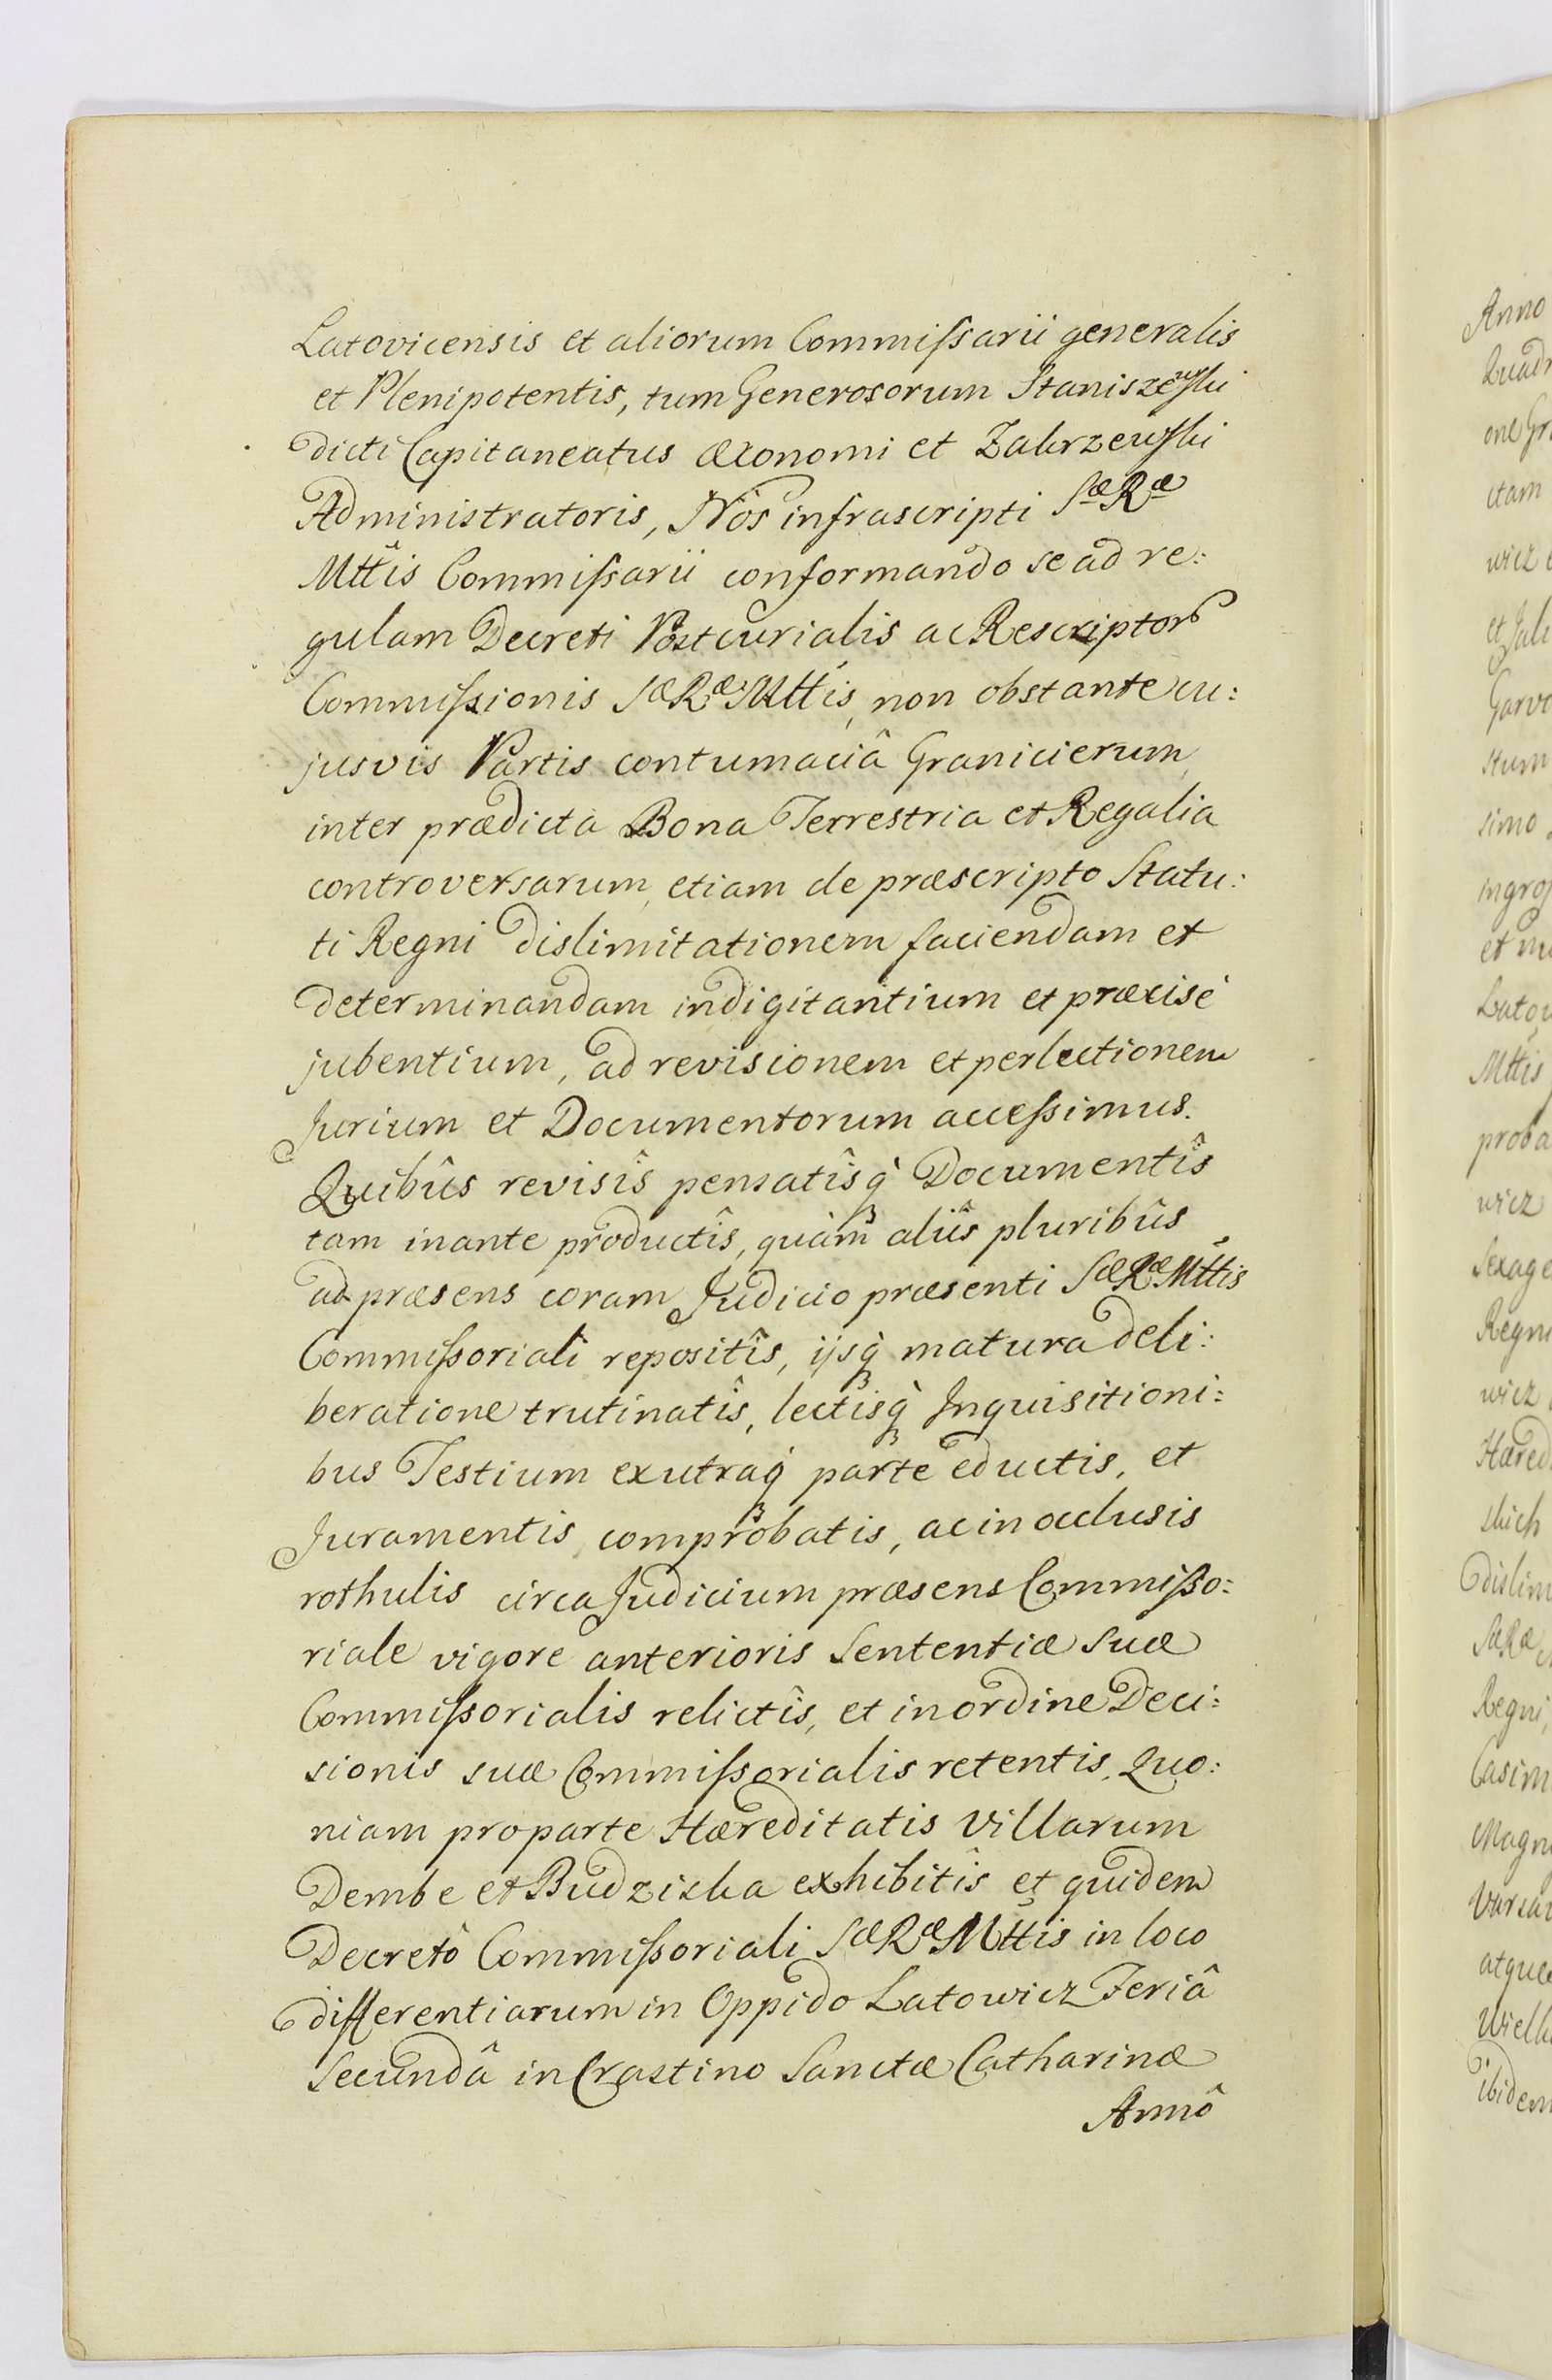 Latovicensis et aliorum Commissarii generalis
et Plenipotentis, tum Generosorum Staniszewski
dicti Capitaneatus Œconomi et Zakrzewski
Administratoris, Nos infrascripti Sæ Ræ
Mttis Commissarii conformando se ad re:
gulam Decreti Postcurialis ac Rescriptor
Commissionis Sæ Ræ Mttis, non obstante cu:
jusvis Partis contumaciâ Granicierum
inter prædicta Bona Terrestria et Regalia
controversarum, etiam de præscripto Statu:
ti Regni dislimitationem faciendam et
determinandam indigitantium et præcisè
jubentium, ad revisionem et perlectionem
Jurium et Documentorum accessimus.
Quibûs revisîs pensatîsq̀ Documentîs
tam inante productîs, quàm aliîs pluribûs
ad præsens coram Judicio præsenti Sæ Ræ Mttis
Commissoriali repositîs, ijsq̀ matura deli:
beratione trutinatîs, lectisq̀ Inquisitioni:
bus Testium ex utraq̀ parte eductis, et
Juramentis comprobatis, ac in occlusis
rothulis circa Judicium præsens Commisso:
riale vigore anterioris Sententiæ suæ
Commissorialis relictîs, et in ordine Deci:
sionis suæ Commissorialis retentis, Quo:
niam pro parte Hæreditatis Villarum
Dembe et Budziska exhibitîs et quidem
Decretô Commissoriali Sæ Ræ Mttis in loco
differentiarum in Oppido Latowicz Feriâ
Secundâ in Crastino Sanctæ Catharinæ
Annô
Anno
ctam
et Jali
Garvo
simo
Mttis
proba
wicz
Sexage
Regni
wicz
Hæred
dislim
Sæ Ræ
Regni,
Casim
Magn
Varsa
atque
Wielk
ibidem